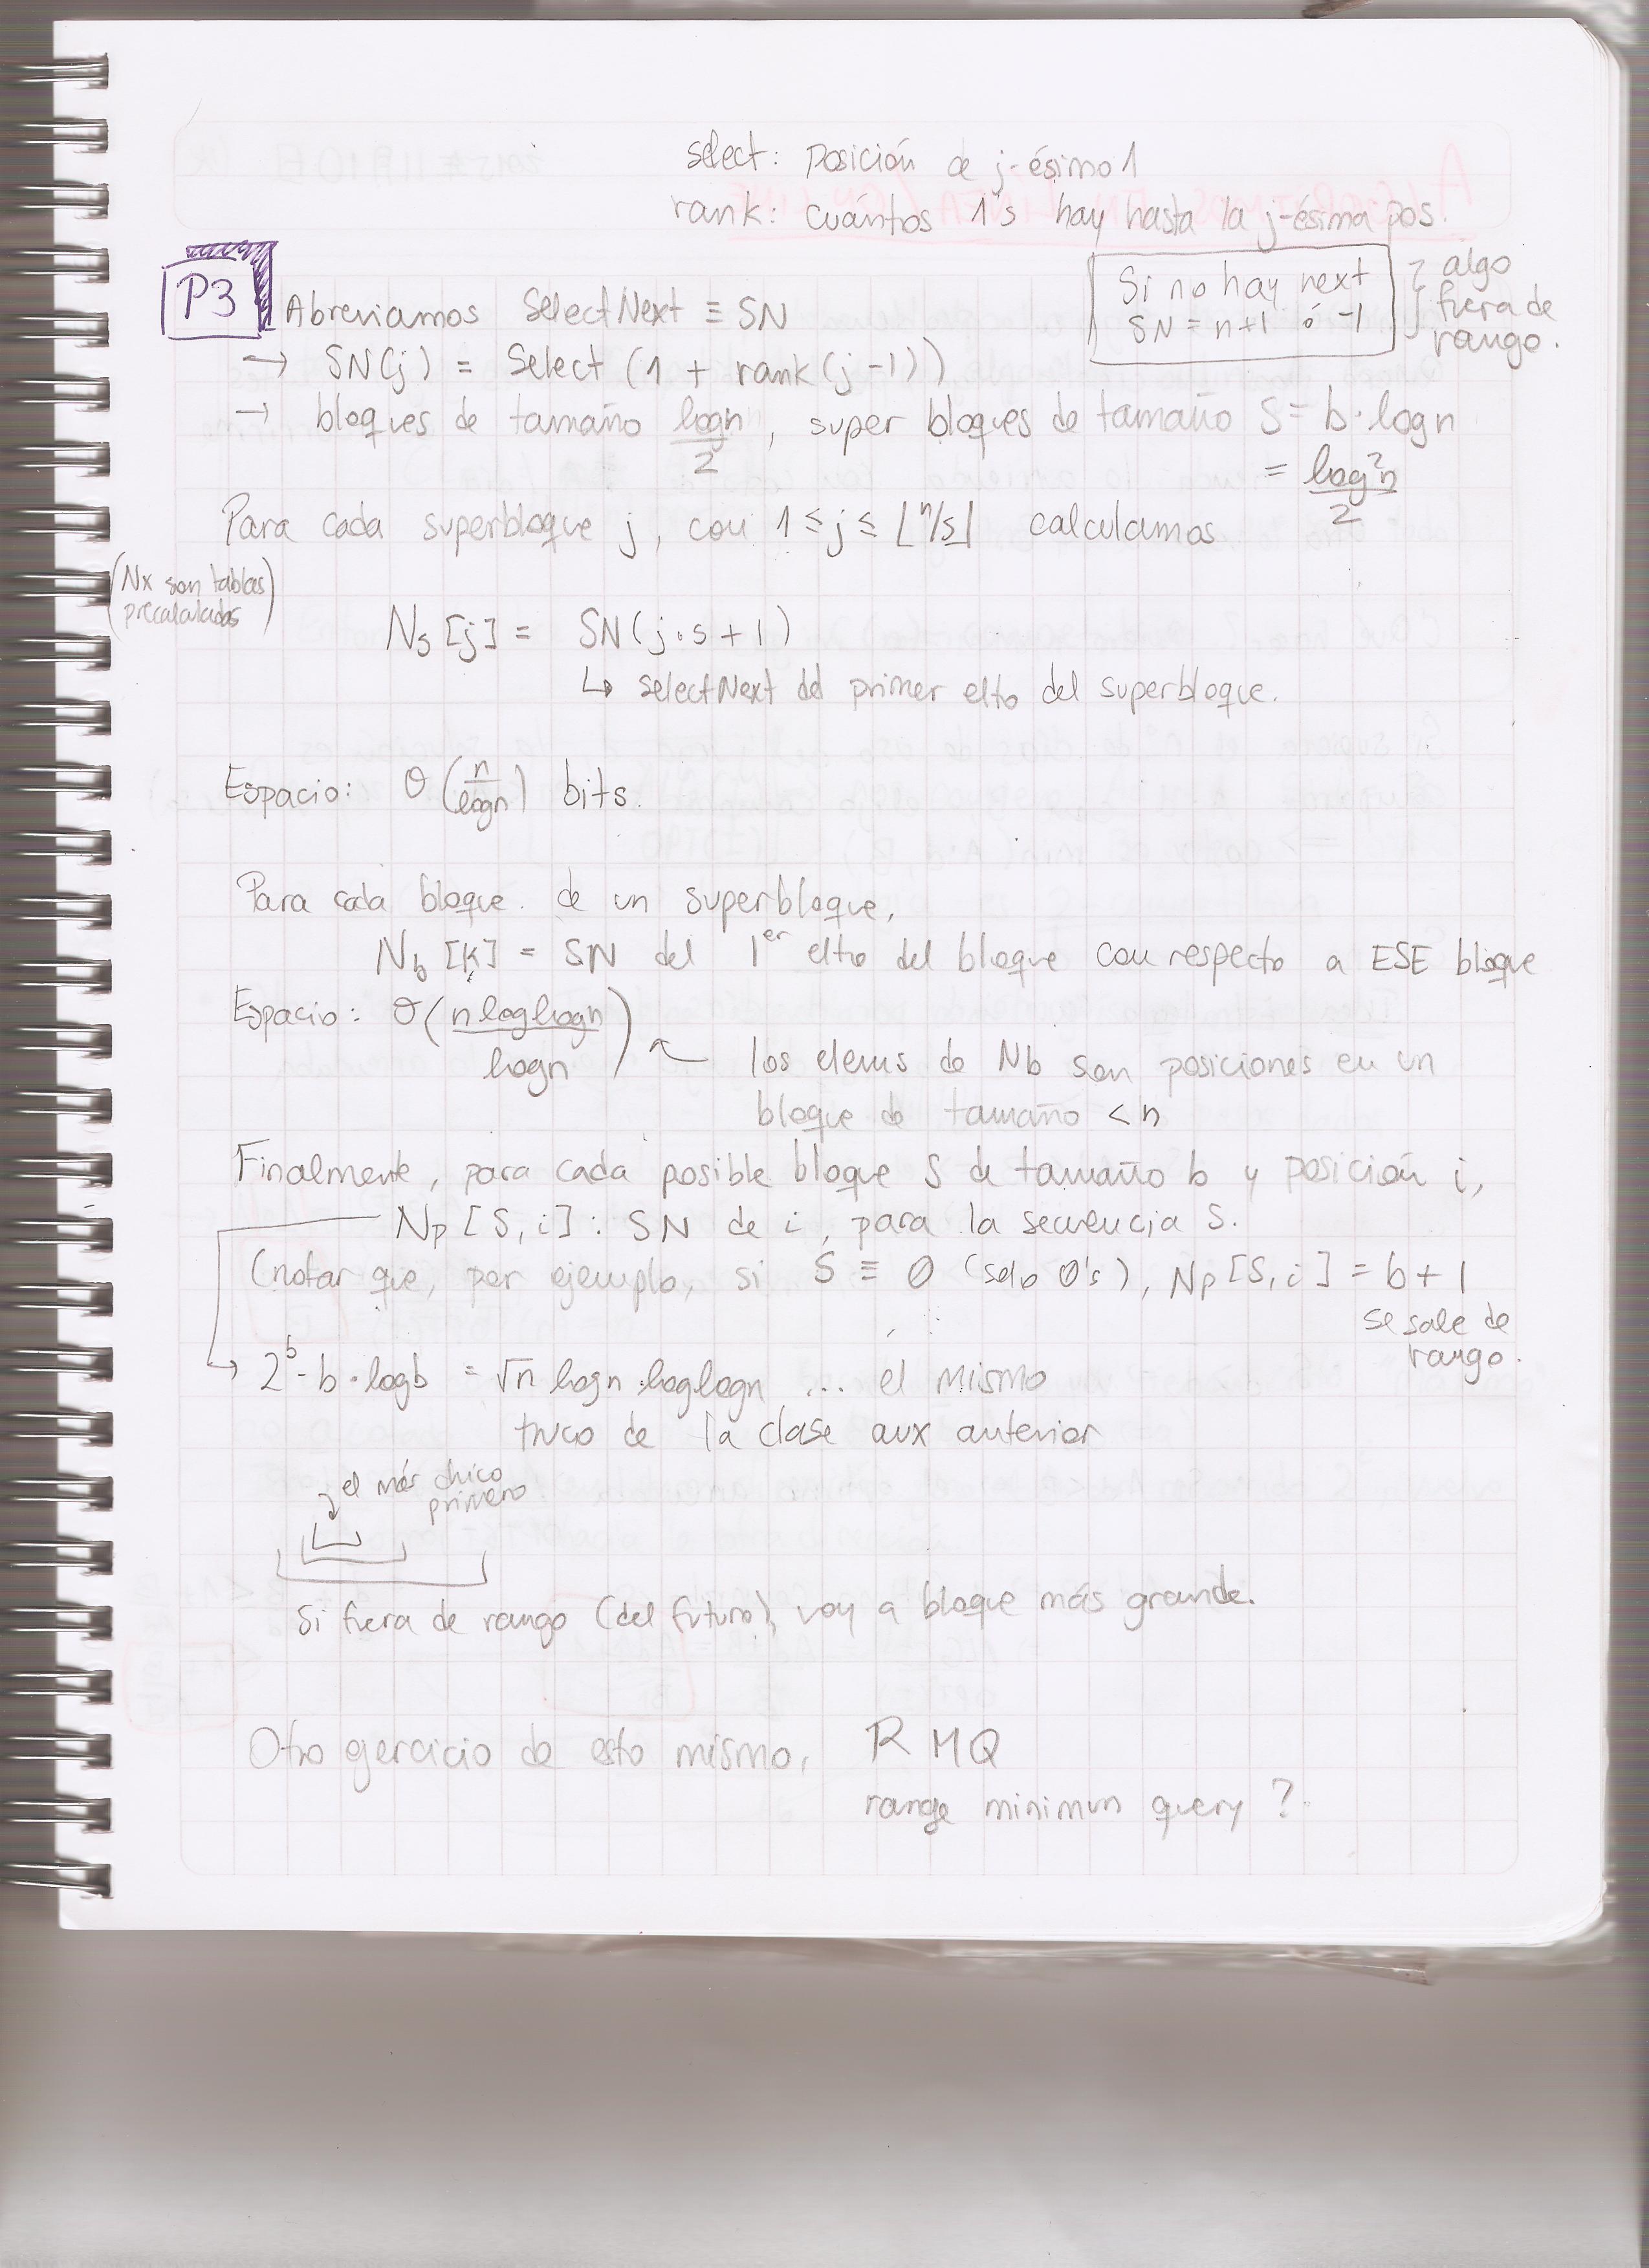 select: posición de j-ésimo 1
rank: cuántos 1's hay hasta la j-ésima pos.
P3
Abreviamos SelectNext ≡ SN
Si no hay next
SN = n+1 ó -1
algo
fuera de
rango.
→ SN(j) = Select (1 + rank(j-1))
→ bloques de tamaño logn/2, super bloques de tamaño S = b·logn
= log²n/2
Para cada superbloque j, con 1 ≤ j ≤ ⌊n/s⌋ calculamos
(Nx son tablas
precalculadas)
Ns[j] = SN(j·s+1)
↳ selectNext del primer elto del superbloque.
Espacio: O(n/logn) bits.
Para cada bloque de un superbloque,
Nb[k] = SN del 1er elto del bloque con respecto a ESE bloque
Espacio: O(n loglogn/logn) ← los elems de Nb son posiciones en un
bloque de tamaño < n
Finalmente, para cada posible bloque S de tamaño b y posición i,
Np[S,i]: SN de i, para la secuencia S.
(notar que, por ejemplo, si S ≡ 0 (solo 0's), Np[S,i] = b+1
se sale de
rango.
→ 2^b · b · logb = √n logn · loglogn ... el mismo
truco de la clase aux anterior
el más chico
primero
Si fuera de rango (del futuro), voy a bloque más grande.
Otro ejercicio de esto mismo, RMQ
range minimun query?